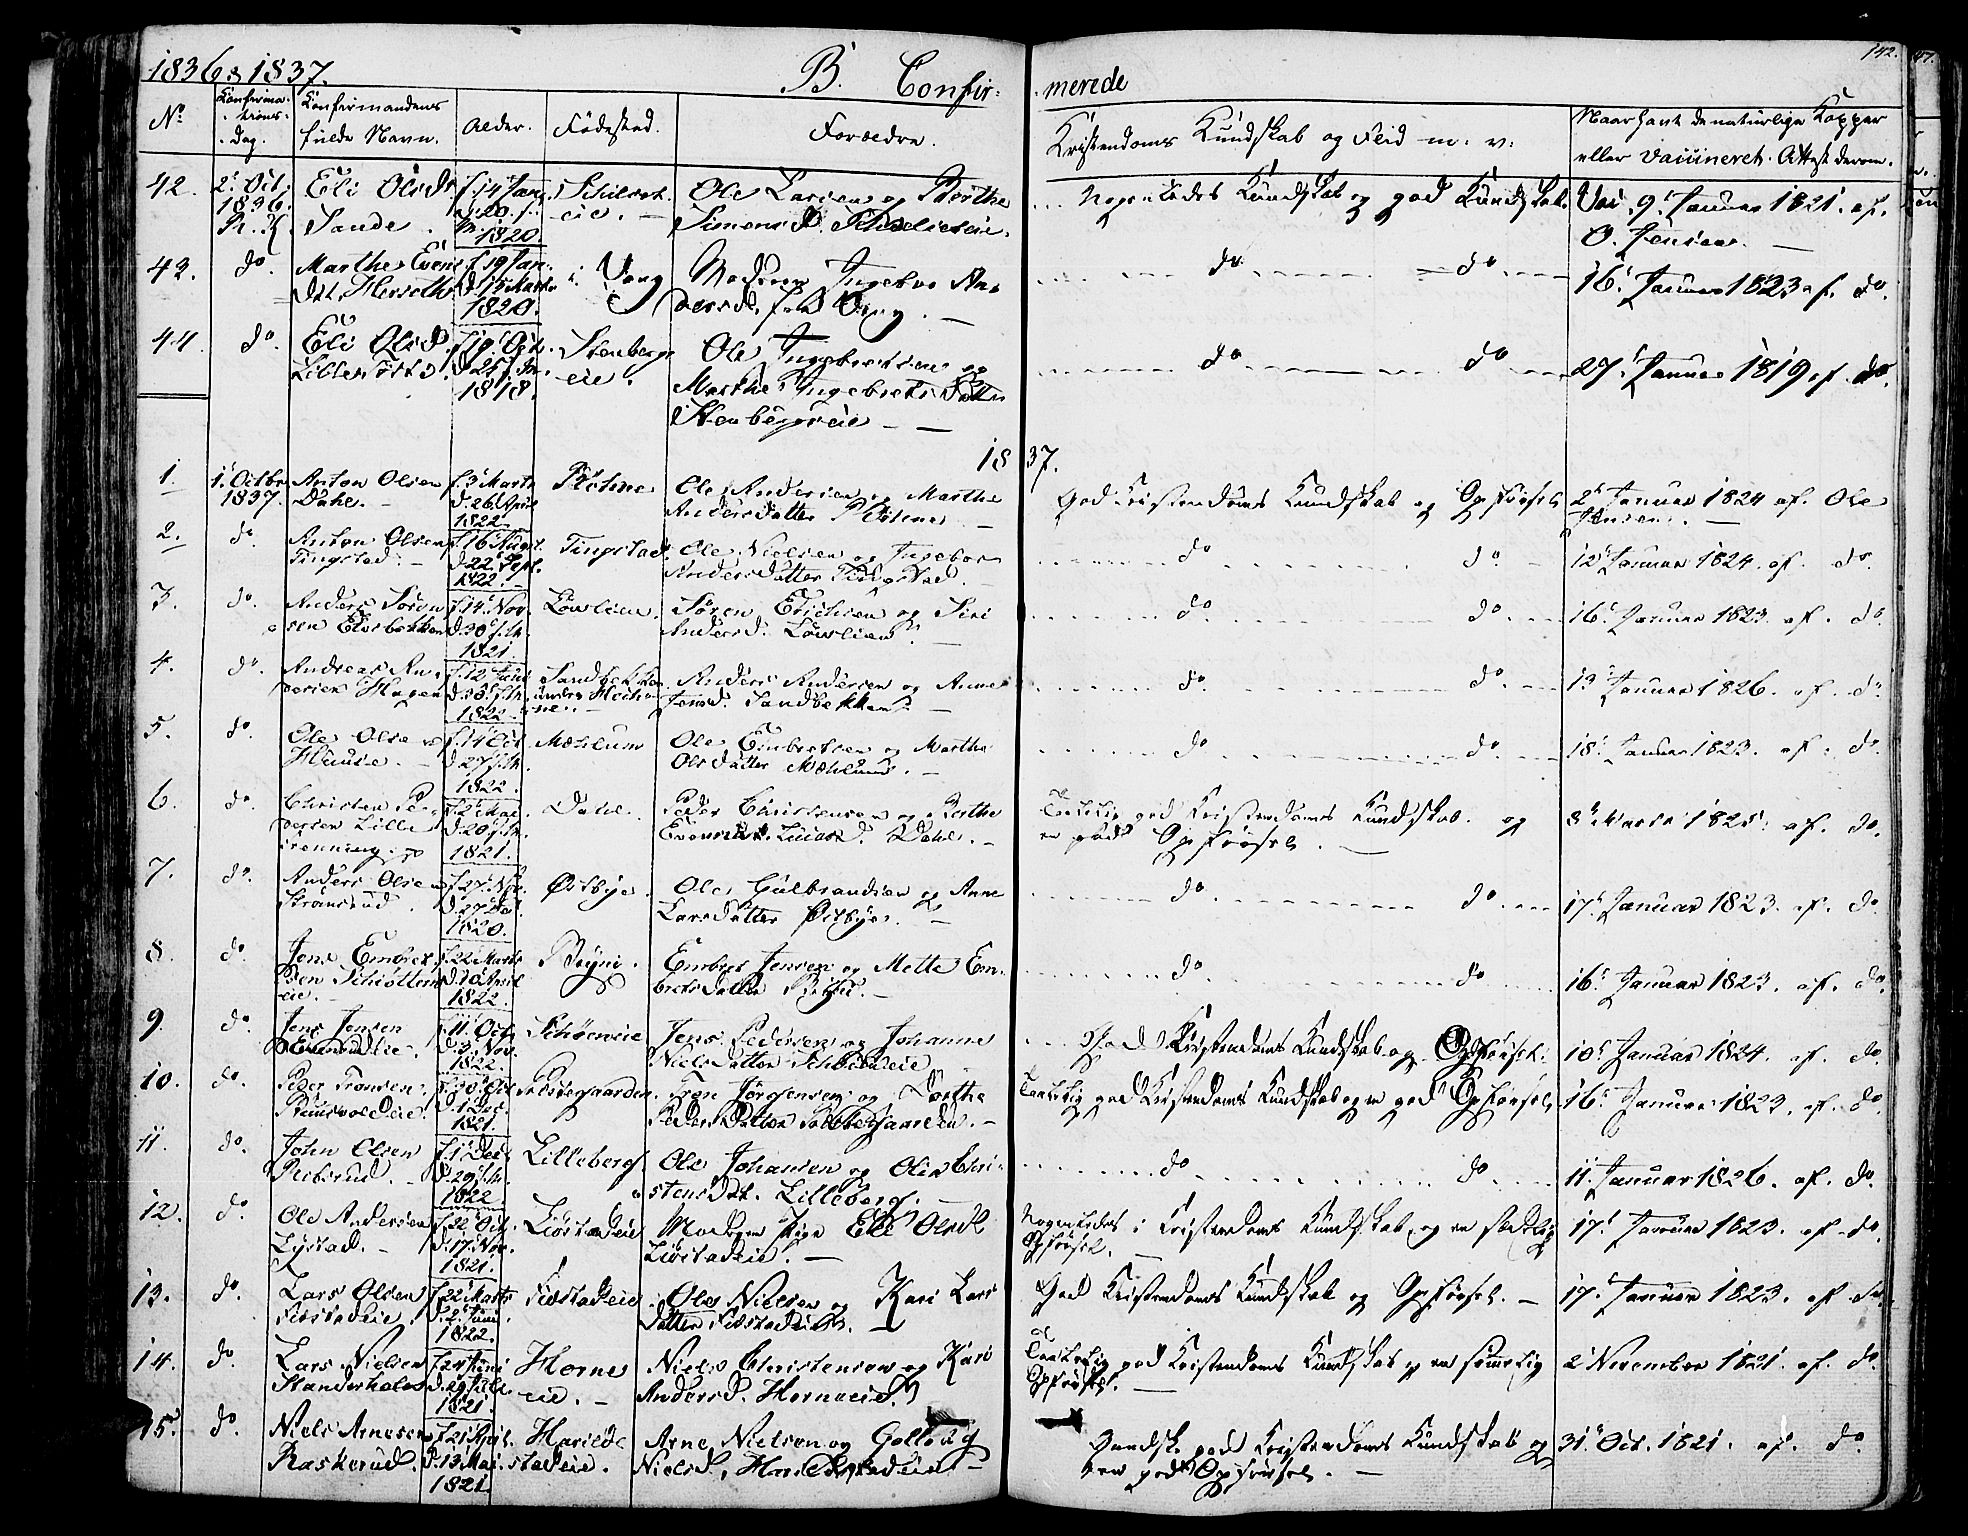 1836 & 1837.
B. Confir-
merede
142.
No
Konfirma-
tions-
Dag.
Konfirmandens
fulde Navn.
Alder.
Fødested.
Forældre.
Kristendoms Kundskab og Flid m: v:
Naar havt de naturlige Kopper
eller vaccineret. Attest derom.
42.
2. Oct.
1836.
R. K.
Eli Olsdr
Sande.
f. 14 Jan.
1820.
eie.
Ole Larsen og Berthe
Simensd.
Nogenledes Kundskab og god Kundskab.
Vac. 9. Januar 1821. af.
O. Jensen.
43.
do.
Marthe Evens
dtr. Herseth
f. 19 Jan.
d. 15 Marts
1820.
i Vang
Moderen Ingebor An
dersd. fra Vang.
do. do.
16. Januar 1823 af. do.
44.
do.
Eli Olsd.
f. 19 Oct.
d. 25 f. M.
1818.
Stenbergs
eie.
Ole Ingebretsen og
Marthe Ingebrets Datter
Stenbergseie
do do
27. Januar 1819 af. do.
1837.
1.
1. Octbr
1837.
Anton Olsen
Dahl.
f. 3 Marts
d. 26 April
1822.
Ole Andersen og Marthe
Andersdatter
God Kristendoms Kundskab og Opførsel
2. Januar 1824 af. Ole
Jensen.
2.
do.
Anton Olsen
Tingstad.
f. 16 August
d. 22 Sept.
1822.
Tingstad
Ole Nielsen og Ingebor
Andersdatter Tingstad.
do do.
12 Januar 1824. af. do.
3.
do.
Anders Søren
sen
f. 14. Nov
d. 30 f. M.
1821.
Løvlien.
Søren Erichsen og Siri
Andersd. Løvlien
do. do.
16. Januar 1823. af. do.
4.
do.
Andreas An-
dersen Hagen
f. 12 Juni
d. 30 f. M.
1822.
Sandbekken
Anders Andersen og Anne
Jensd. Sandbekken
do do.
13 Januar 1826. af. do.
5.
do.
Ole Olsen
f. 14 Oct.
d. 27 f. M.
1822.
Mæhlum
Ole Embretsen og Marthe
Olsdatter Mæhlum.
do do.
18. Januar 1823. af. do.
6.
do.
Christen Pe-
dersen Lille
f. 2 Mai
d. 20 f. M.
1821.
Dahl.
Peder Christensen og Berthe
Dahl.
Temmelig god Kristendoms Kundskab. og
en god Opførsel.
8. Marts 1825. af. do.
7.
do.
Anders Olsen
f. 27. Nov.
d. 27 Dec.
1820.
Østbye.
Ole Gulbrandsen og Anne
Larsdatter Østbye.
do do.
17. Januar 1823. af. do.
8.
do.
Jens Embret
sen
eie.
f. 22 Marts
d. 10 April
1822.
Embret Jensen og Mette Em-
bretsdatter
do. do
16. Januar 1823. af. do.
9.
do.
Jens Jensen
f. 11. Oct.
d. 3. Nov.
1822.
Jens Pedersen og Johanne
Nielsdatter
God Kristendoms Kundskab og Opførsel.
10. Januar 1824. af. do
10.
do.
Peder Tronsen
f. 30 Oct
d. 1 Dec.
1821.
Præstegaarden.
Tron Jørgensen og Dorthe
Pedersdatter Præstegaarden.
Temmelig god Kristendoms Kundskab og en god Opførsel.
16. Januar 1823. af. do.
11.
do.
John Olsen
f. 1 Dec.
d. 29 f. M.
1822
Lilleberg
Ole Johansen og Olia Chri-
stensdatt. Lilleberg.
do do.
11. Januar 1826. af. do.
12.
do.
Ole Andersen
Lystad.
f. 22 Oct.
d. 17. Nov.
1821.
Moderen Pige Eli Olsd.
Nogenledes i Kristendoms Kundskab, og en sædelig
Opførsel.
17. Januar 1823. af do.
13.
do.
Lars Olsen
f. 22 Marts
d. 2. Juni
1822.
Ole Nielsen og Kari Lars
datter
God Kristendoms Kundskab og Opførsel.
17. Januar 1823. af do.
14.
do.
Lars Nielsen
f. 24 Juni
d. 29 Juli
1821.
Horne
eie.
Niels Christensen og Kari
Andersd. Horneeie.
Temmelig god Kristendoms Kundskab og en sømmelig
Opførsel.
2 November 1821. af. do.
15.
do.
Niels Arnesen
Raskerud.
f. 21 April.
d. 13 Mai
1821.
Harilds
stadeie.
Arne Nielsen og Golloug
Nielsd.
Gandske god Kristendoms Kundskab og
en god Opførsel.
31. Oct. 1821. af. do